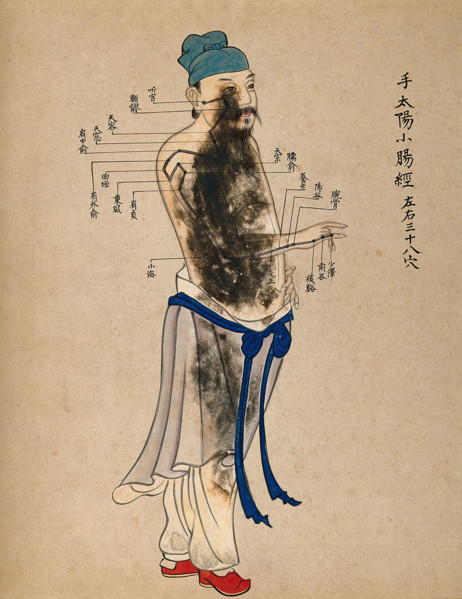 手太陽小腸經 左右三十八穴
听宮
顴髎
天容
天窓
肩中俞
曲垣
肩外俞
秉風
肩貞
小海
天宗
臑俞
養老
陽谷
腕骨
少澤
前谷
後谿
正